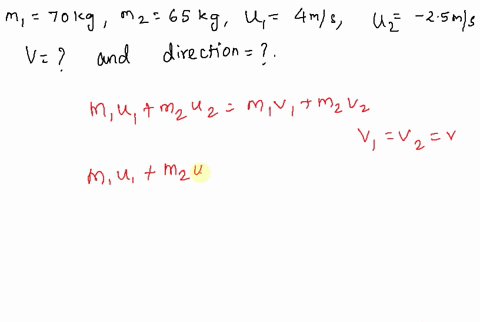 m₁ = 70 kg, m₂ = 65 kg, u₁ = 4 m/s, u₂ = -2.5 m/s
V = ? and direction = ?.
m₁u₁ + m₂u₂ = m₁v₁ + m₂v₂
v₁ = v₂ = v
m₁u₁ + m₂u